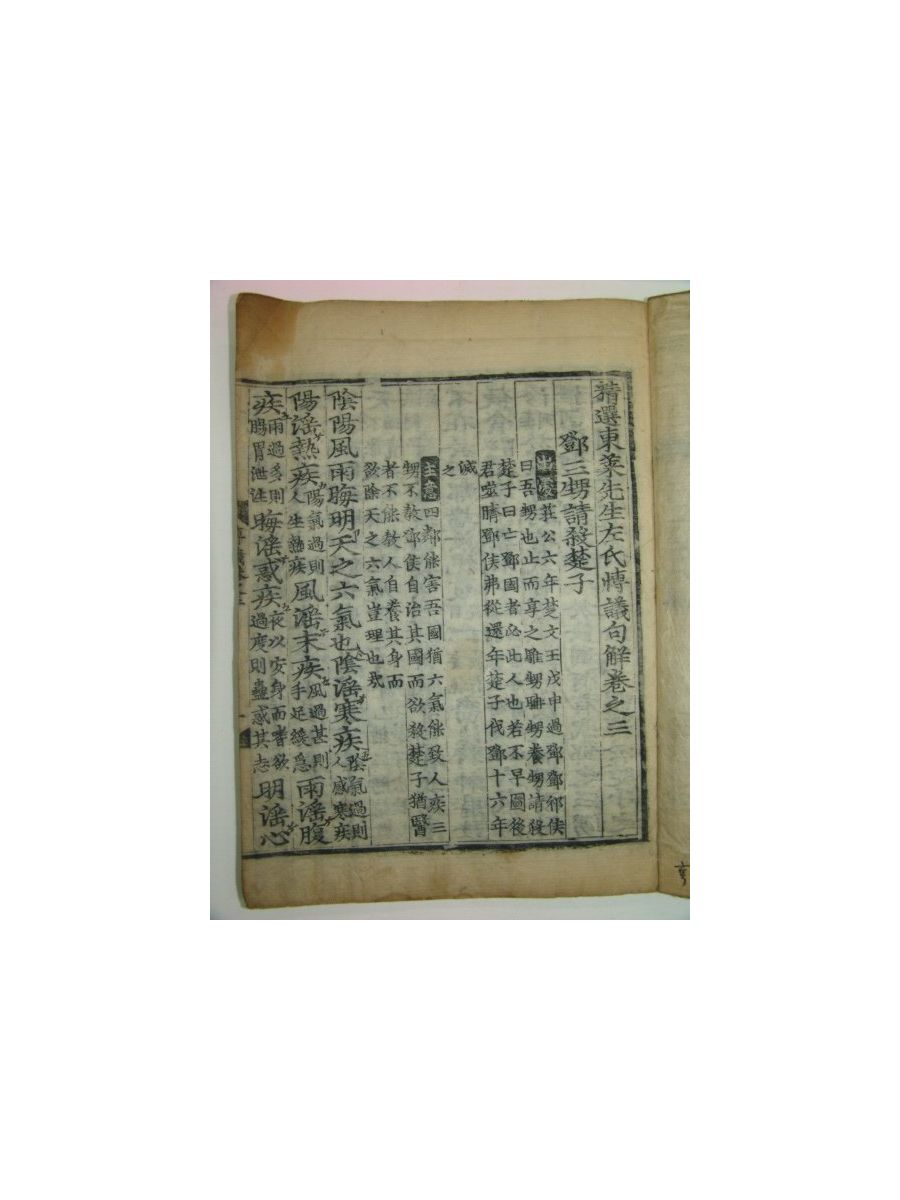 精選東萊先生左氏博議句解卷之三
鄧三甥請殺楚子
出處莊公六年楚文王伐申過鄧鄧祁侯
曰吾甥也止而享之騅甥聃甥養甥請殺
楚子曰亡鄧國者必此人也若不早圖後
君噬臍鄧侯弗從還年楚子伐鄧十六年
滅
之
主意四鄰能害吾國猶六氣能致人疾三
甥不教鄧侯自治其國而欲殺楚子猶醫
者不能教人自養其身而
欲除天之六氣豈理也哉
陰陽風雨晦明天之六氣也陰淫寒疾陰氣過則人感寒疾
陽淫熱疾陽氣過則人生熱疾風淫末疾風過甚則手足緩急雨淫腹
疾雨過多則腸胃泄注晦淫惑疾夜以安身而嗜欲過度則蠱惑其志明淫心